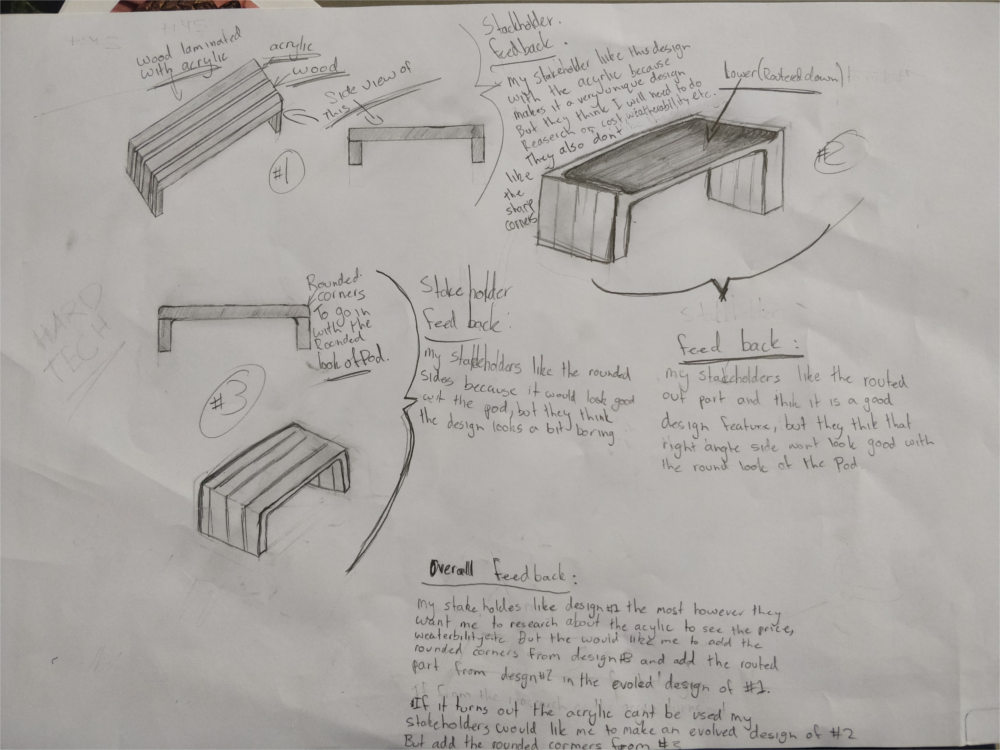 Wood laminated
with acrylic
acrylic
wood
Side view of
this
#1
Stackholder
feedback.
My stakeholder like this design
with the acyrlic because
makes it a very unique design
But they think I will need to do
Reaserch on cost, weatherability etc.
They also dont
like
the
sharp
corners
Lower (Routered down)
#2
feed back:
my stakeholders like the routed
out part and thik it is a good
design feature, but they thik that
right angle side wont look good with
the round look of the Pod
Rounded
corners
To go in
with the
Rounded
look of Pod.
#3
Stakeholder
feed back:
my stakeholders like the rounded
sides because it would look good
wit the pod, but they think
the design looks a bit boring
HARD
TECH
Overall feedback:
My stakeholdes like design#1 the most however they
want me to research about the acylic to see the price,
weaterbility etc. But the would like me to add the
rounded corners from design#3 and add the routed
part from desgn#2 in the evoled design of #1.
If it turns out the acrylic cant be used my
stakeholders would like me to make an evolved design of #2
But add the rounded cormers from #3